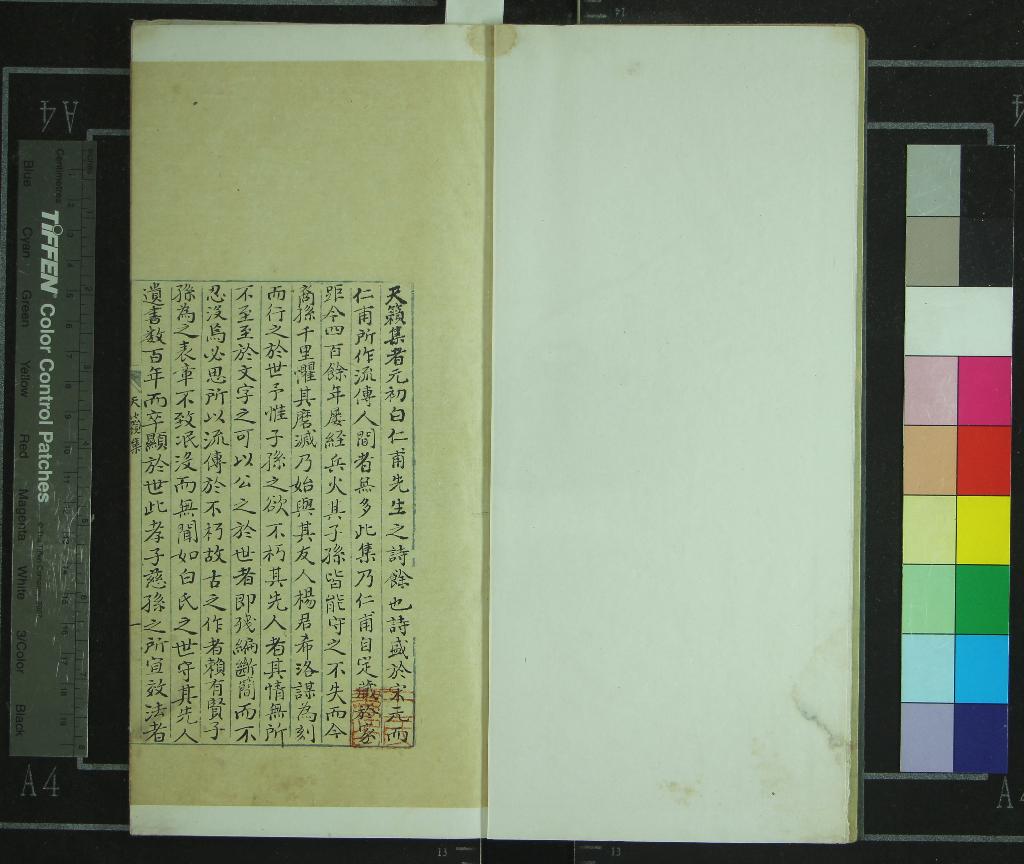 天籟集者元初白仁甫先生之詩餘也詩盛於宋元而
仁甫所作流傳人間者無多此集乃仁甫自定藏於家
距今四百餘年屡経兵火其子孫皆能守之不失而今
裔孫千里懼其磨滅乃始與其友人楊君希洛謀為刻
而行之於世予惟子孫之欲不朽其先人者其情無所
不至至於文字之可以公之於世者即殘編斷簡而不
忍沒焉必思所以流傳於不朽故古之作者賴有賢子
孫為之表章不致泯沒而無聞如白氏之世守其先人
遺書数百年而卒顯於世此孝子慈孫之所宜效法者
天籟集
一
TIFFEN Color Control Patches
Centimetres
Blue
Cyan
Green
Yellow
Red
Magenta
White
3/Color
Black
A4
A4
A4
13
13